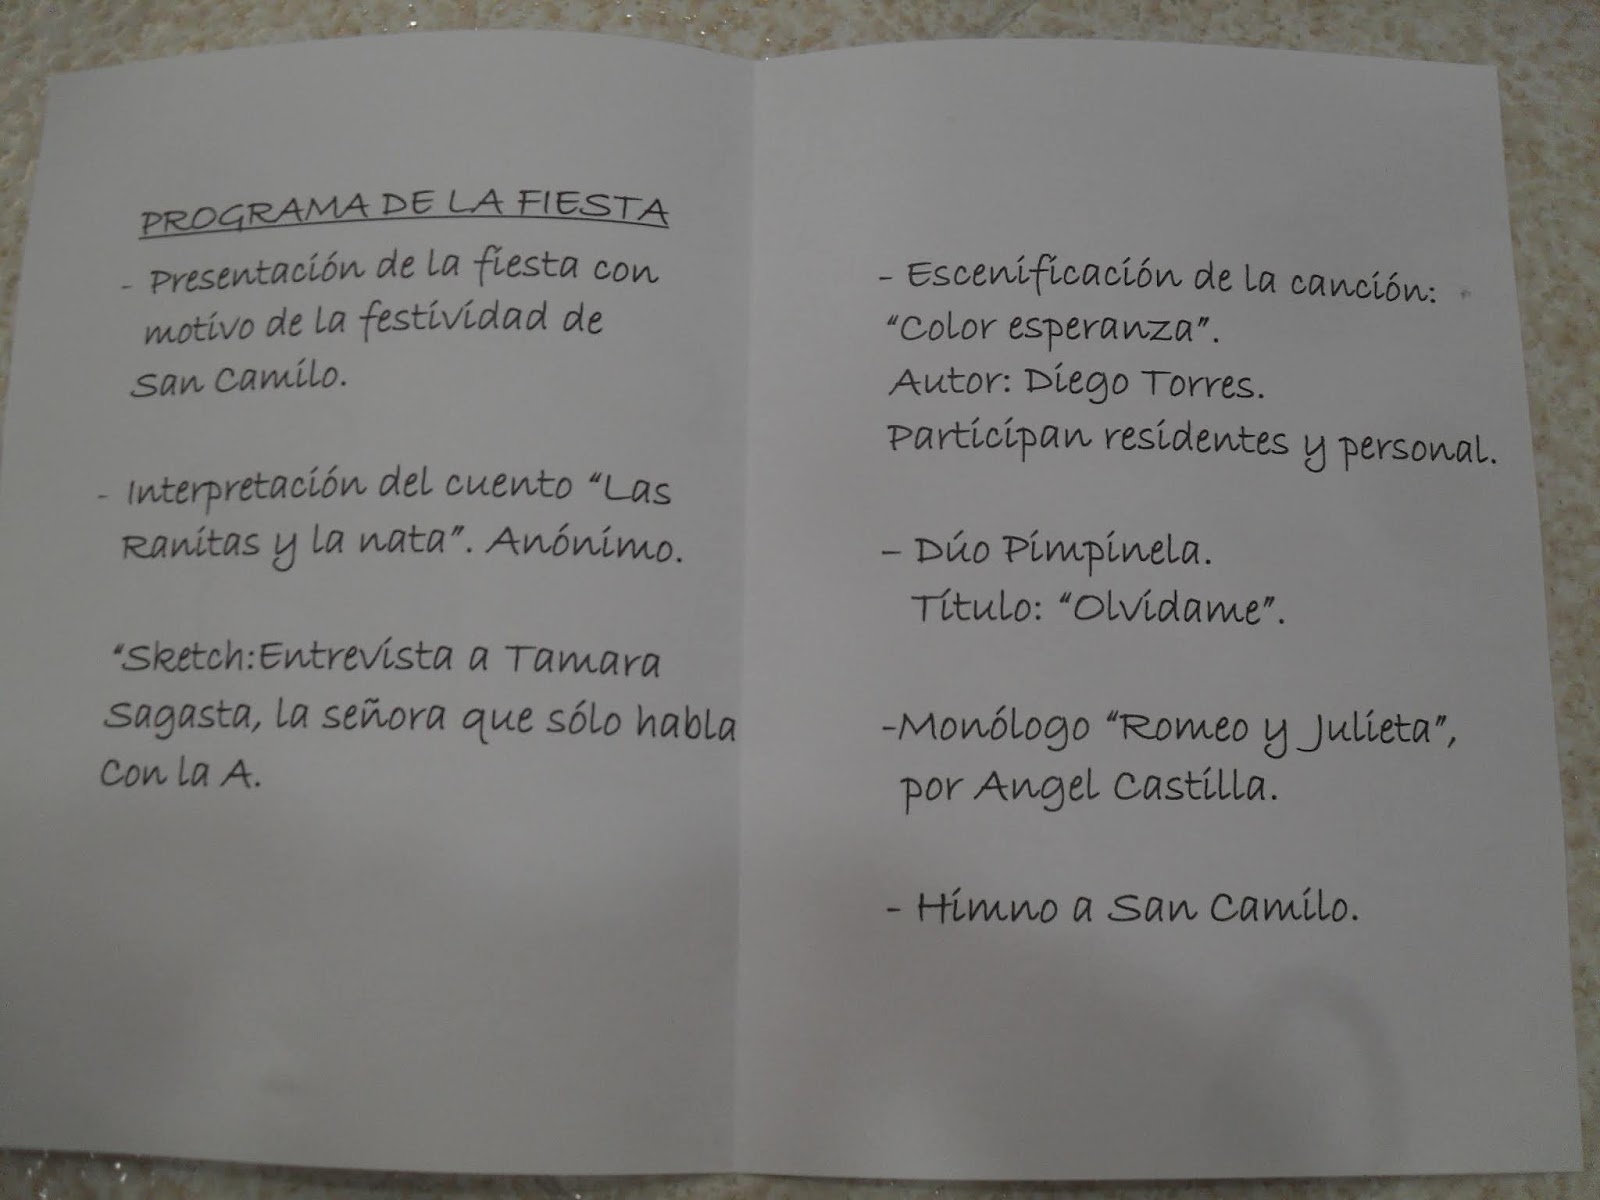 PROGRAMA DE LA FIESTA
- Presentación de la fiesta con
motivo de la festividad de
San Camilo.
- Interpretación del cuento “Las
Ranitas y la nata”. Anónimo.
“Sketch:Entrevista a Tamara
Sagasta, la señora que sólo habla
Con la A.
- Escenificación de la canción:
“Color esperanza”.
Autor: Diego Torres.
Participan residentes y personal.
– Dúo Pimpinela.
Título: “Olvidame”.
-Monólogo “Romeo y Julieta”,
por Angel Castilla.
- Himno a San Camilo.